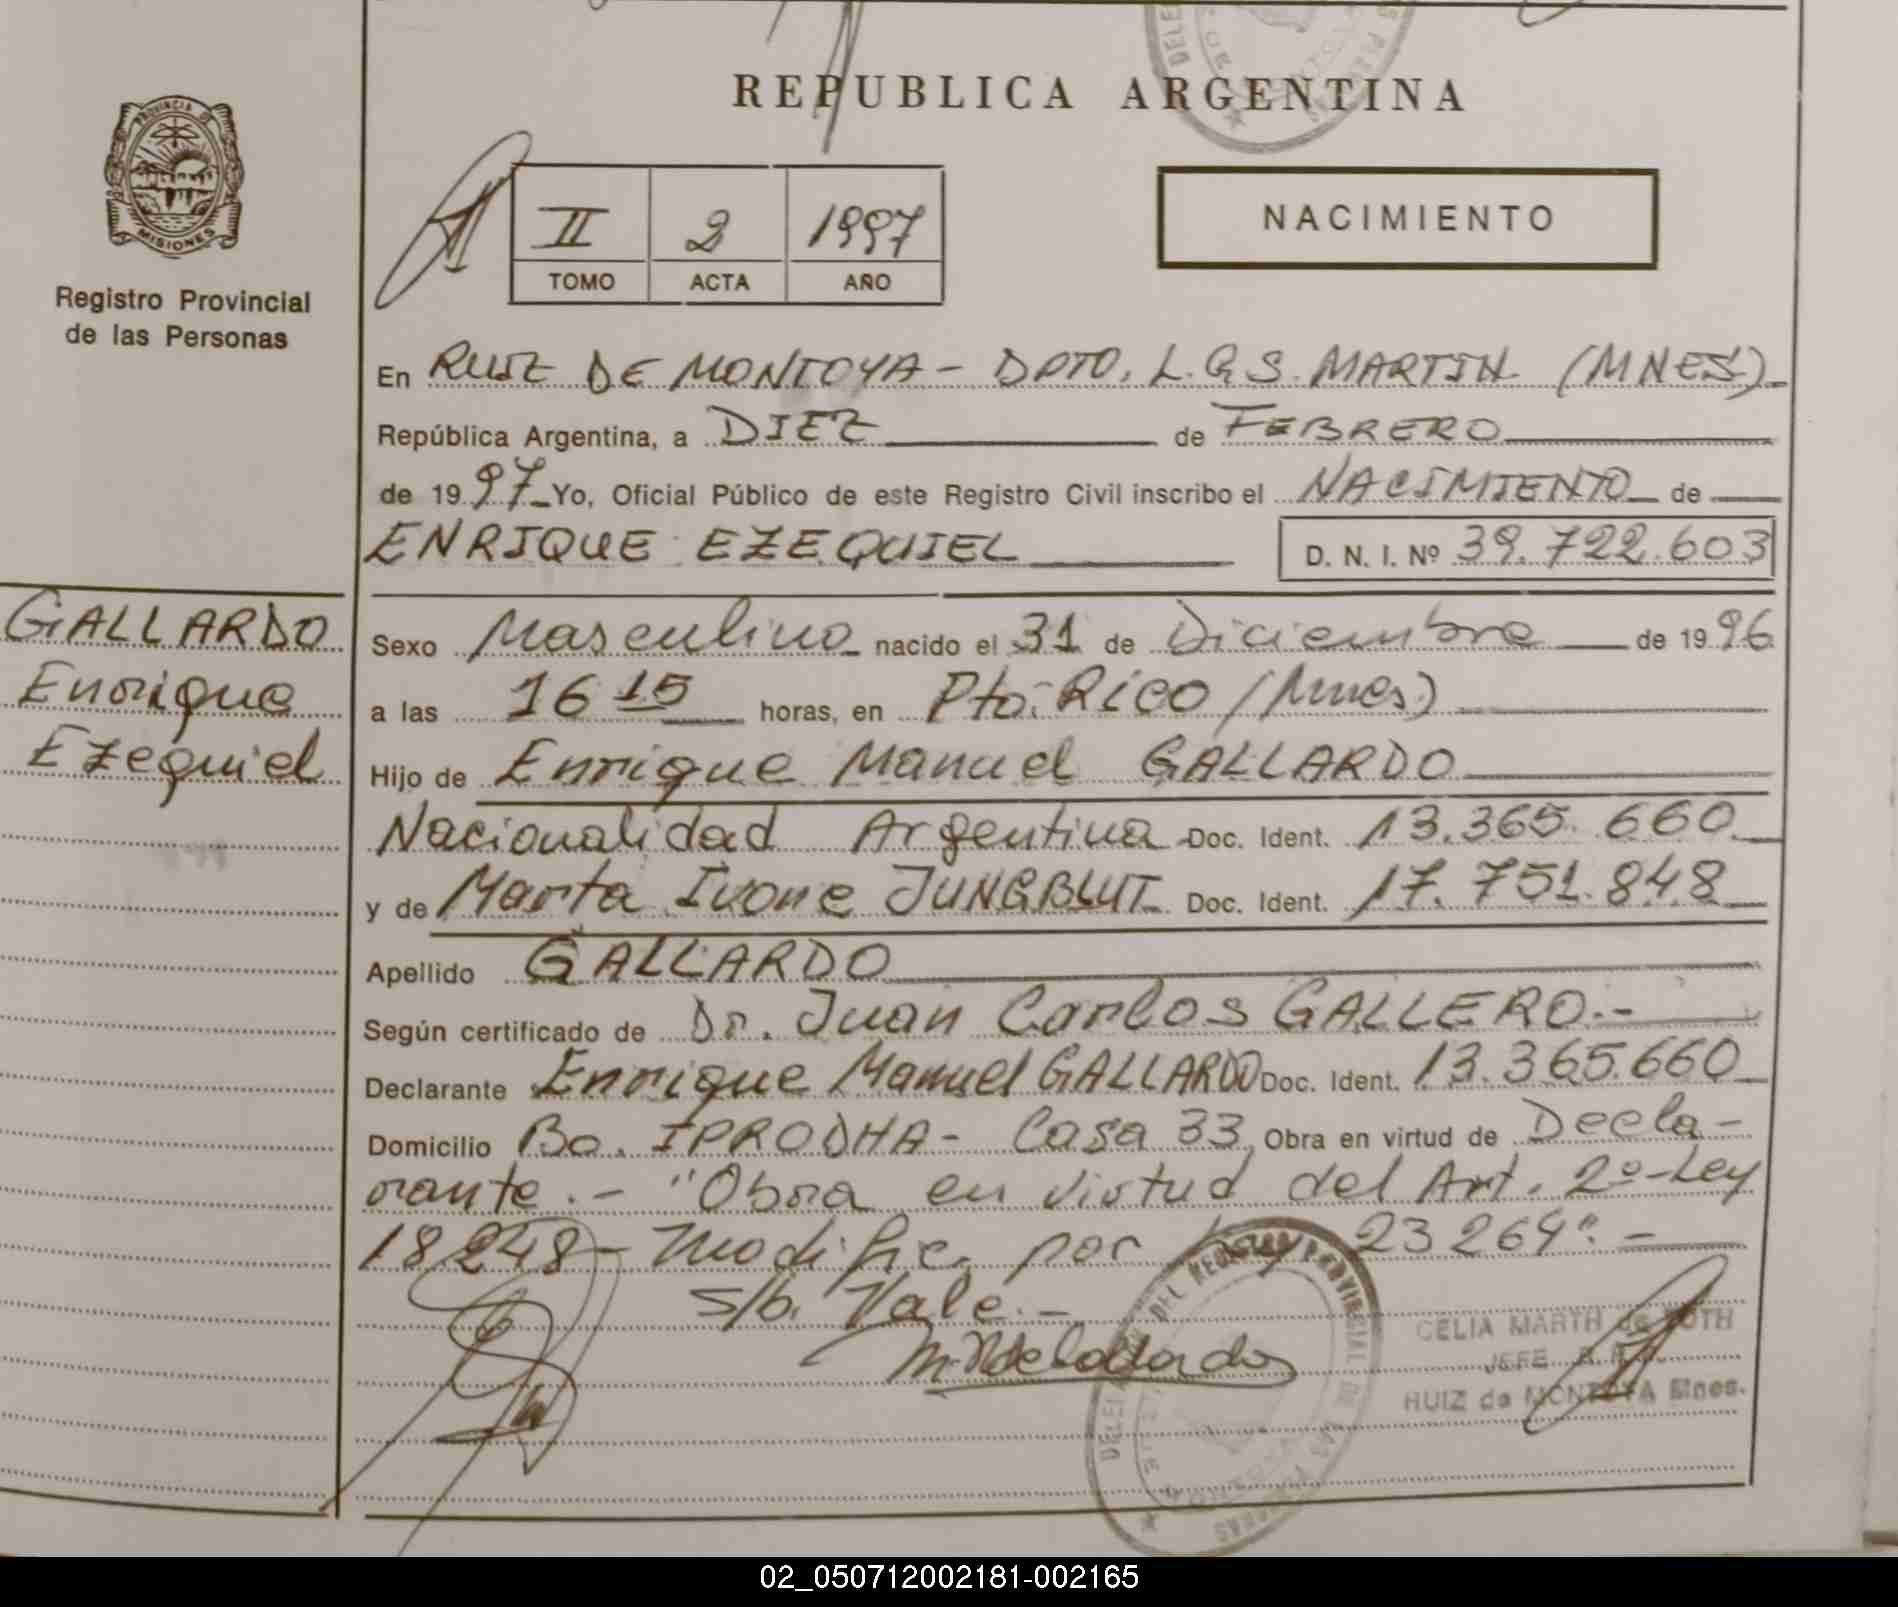 REPUBLICA ARGENTINA
PROVINCIA DE
MISIONES
Registro Provincial
de las Personas
II 2 1997
TOMO ACTA AÑO
NACIMIENTO
En RUIZ DE MONTOYA - DPTO. L.G.S. MARTIN (MNES)
República Argentina, a DIEZ de FEBRERO
de 1997 Yo, Oficial Público de este Registro Civil inscribo el NACIMIENTO de
ENRIQUE EZEQUIEL D. N. I. Nº 39.722.603
GALLARDO
Enrique
Ezequiel
Sexo Masculino nacido el 31 de Diciembre de 1996
a las 16 15 horas, en Pto. Rico (Mnes)
Hijo de Enrique Manuel GALLARDO
Nacionalidad Argentina Doc. Ident. 13.365.660
y de Marta Ivone JUNGBLUT Doc. Ident. 17.751.848
Apellido GALLARDO
Según certificado de Dr. Juan Carlos GALLERO.-
Declarante Enrique Manuel GALLARDO Doc. Ident. 13.365.660
Domicilio Bo. IPRODHA - Casa 33 Obra en virtud de Decla-
rante.- "Obra en virtud del Art. 2º-Ley
18248 - Modific. por Ley 23264".-
s/b. Vale.-
CELIA MARTH de ROTH
JEFE
RUIZ de MONTOYA Mnes.
DEL REGISTRO PROVINCIAL DE LAS PERSONAS
02_050712002181-002165